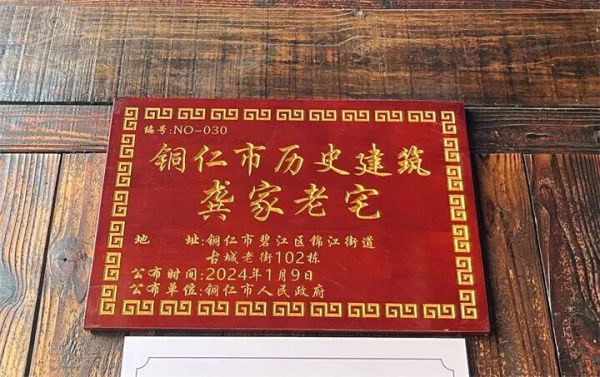 编号:NO-030
铜仁市历史建筑
龚家老宅
地 址:铜仁市碧江区锦江街道
古城老街102栋
公布时间:2024年1月9日
公布单位:铜仁市人民政府